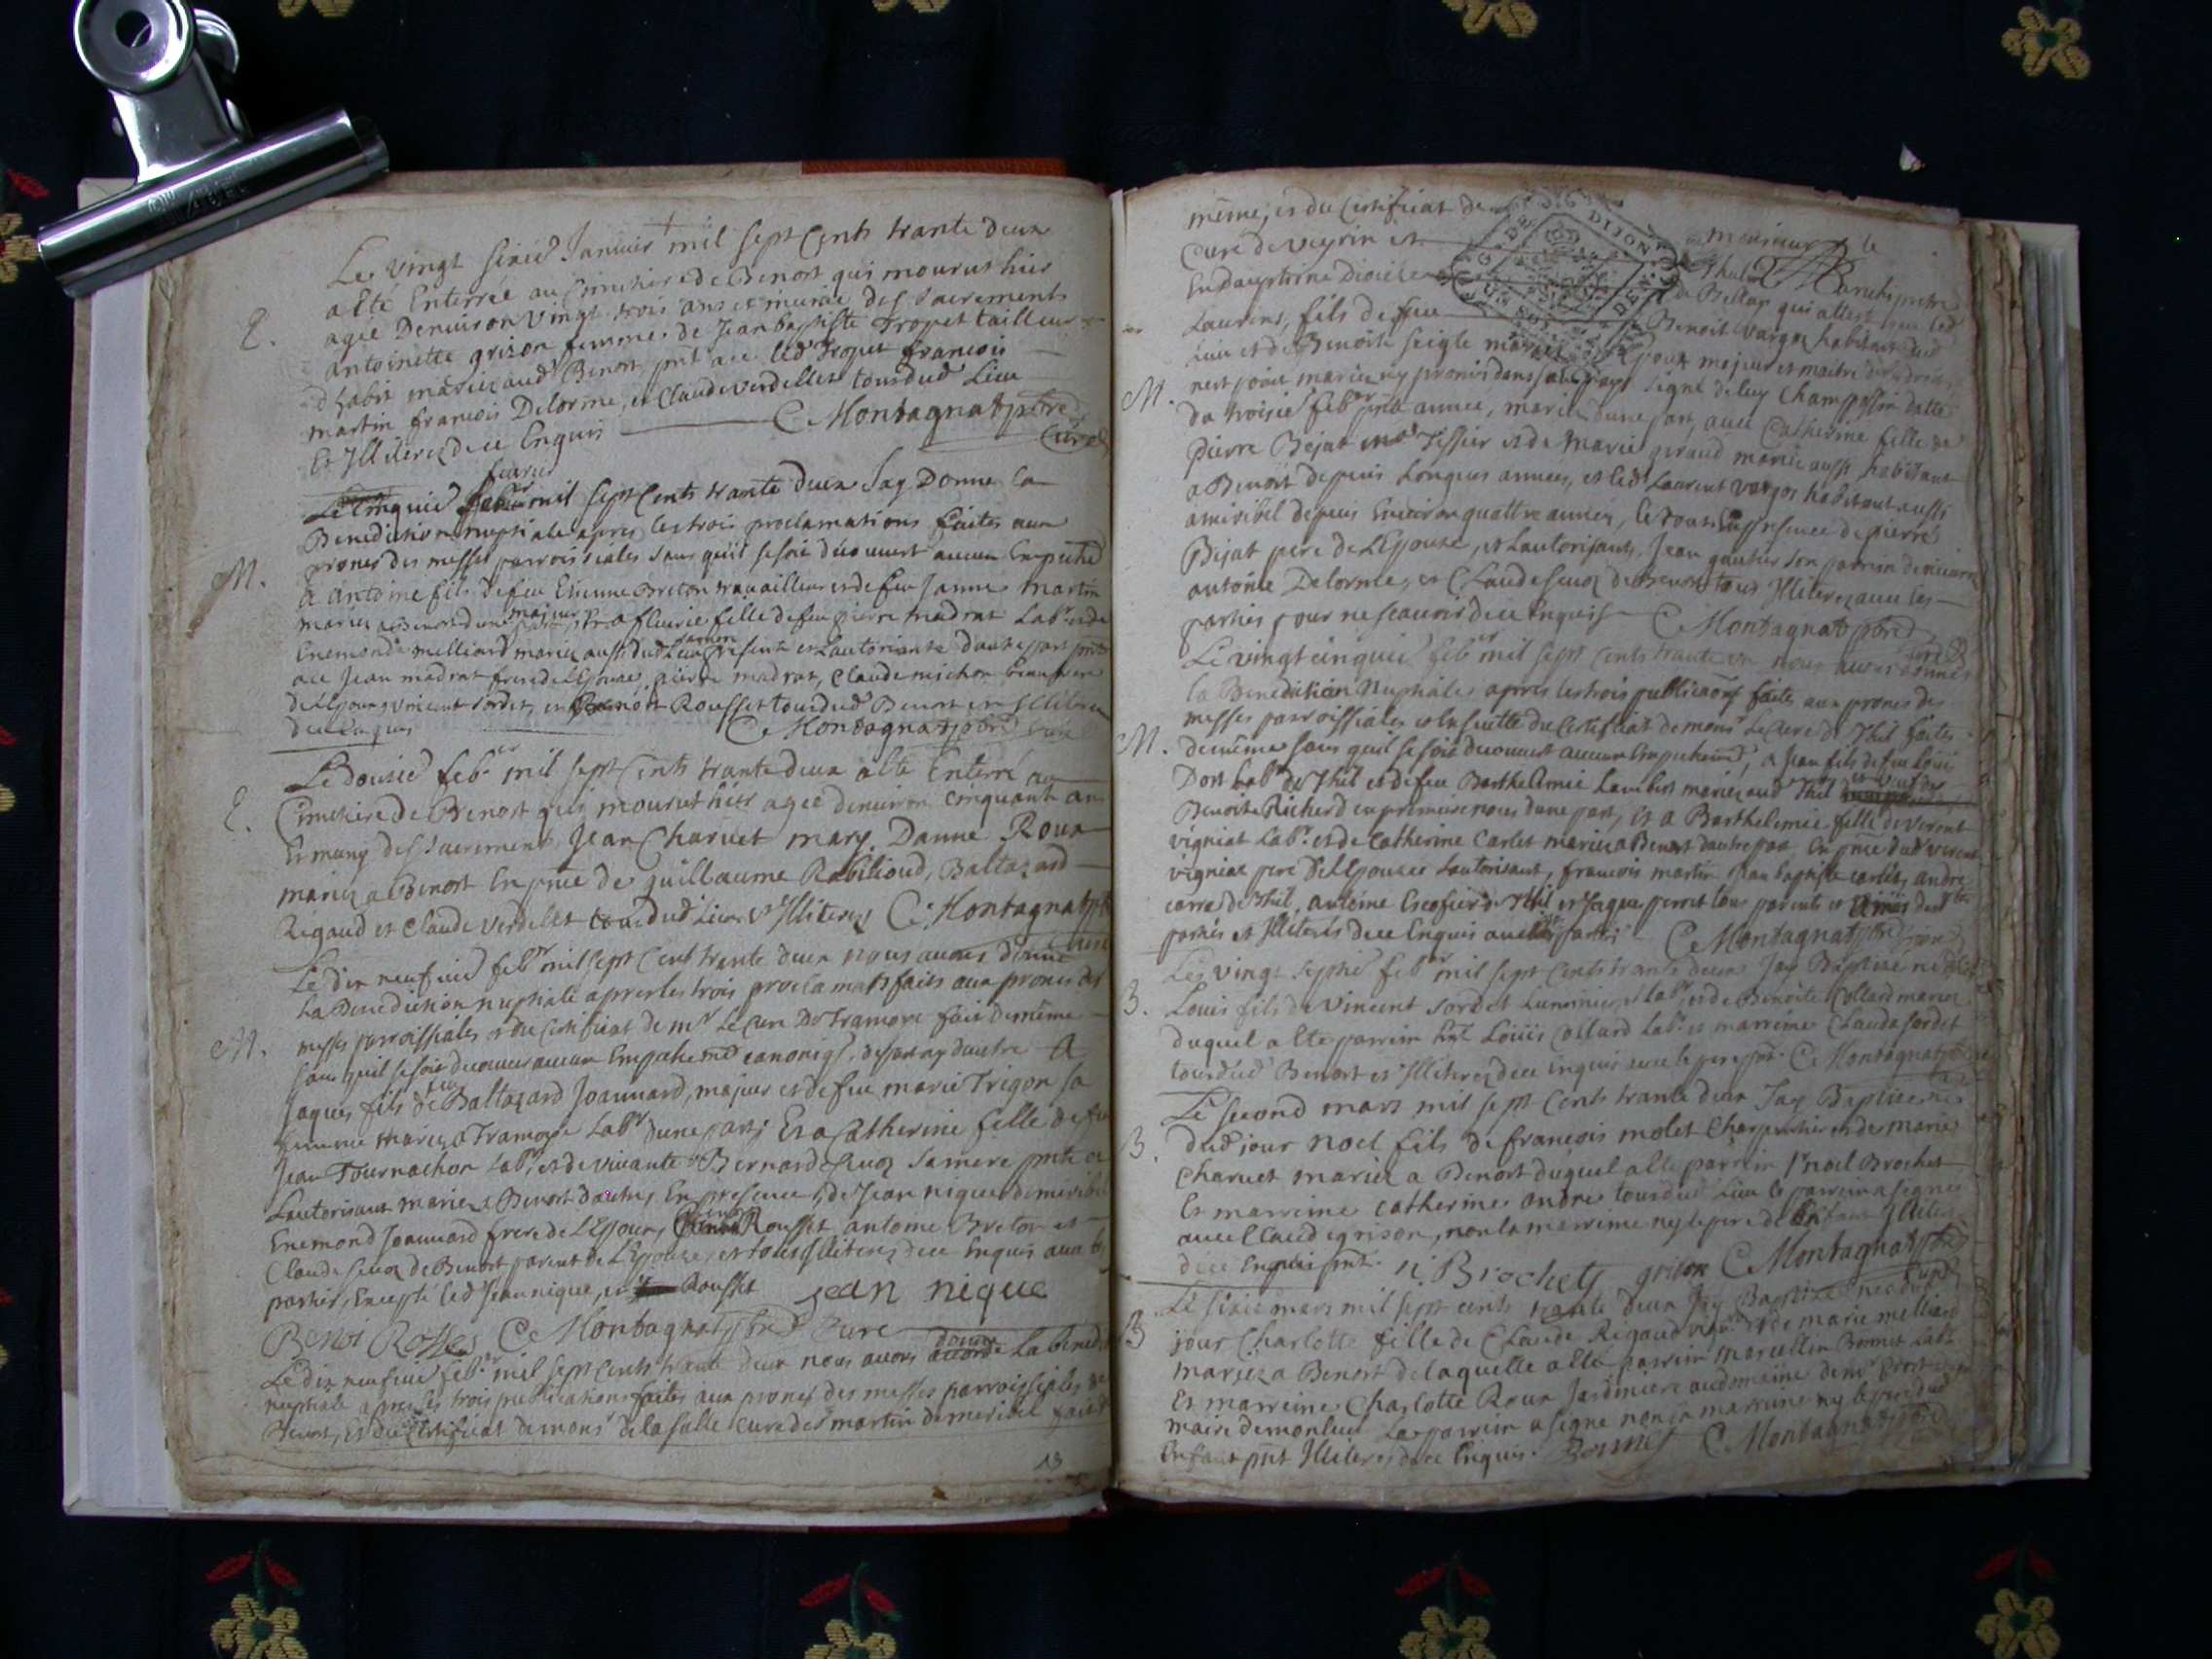 Le vingt sixie Janvier mil sept Cents trante deux
a Eté Enterrée au Cimetiere de Benost qui mourut hier
E.
agée Denviron vingt trois ans et munie des Sacrements
antoinette grison femme de Jean baptiste Tropet tailleur
d'habit mariez aud Benost pnt ace led Tropet francois
martin francois Delorme, et Claude verdellet tous dud Lieu
Et Illiterez de ce Enquis C Montagnat ptre
Curé
fevrier
Le Cinquie mil sept Cents trante deux Jay Donné la
Benediction nuptiale apres les trois proclamations faites aux
prones des messes parroissiales sans qu'il se soit decouvert aucun Empeche
M.
a antoine fils de feu Etienne Breton travailleur et de feu Janne martin
mariez a Benost d'une part, et a fleurie fille de feu pierre madrat Labr et de
Enemonde milliard mariez aussi dud Lieu presente et Lautorisante dautre part pnts
ace Jean madrat frere de Lepouse, pierre madrat, Claude michon beaufrere
de Lepoux vincent Sordet, et Benoit Rousset tous dud Benost et Illiterez
de ce Enquis C Montagnat ptre Curé
Le Douzie febr mil sept Cents trante deux a Eté Enterré au
E.
Cimetiere de Benost qui mourut hier agée denviron Cinquante ans
Et muny des Sacrements Jean Charvet mary Danne Roux
mariez a Benost En pnce de guillaume Rabilioud, Baltazard
Rigaud et Claude verdellet tous dud Lieu et Illiterez C Montagnat ptre
Le dix neufvie febr mil sept Cent trante deux nous avons donné
La Benediction nuptiale apres les trois proclamats faits aux prones des
messes parroissiales et du Certificat de mr Le Curé De Tramoye fait de même
M.
sans quil se soit decouvert aucun Empeche canoniq. de part ny dautre A
Jaques fils de feu Baltazard Joannard, majeur et de feu marie Trigon sa
femme mariez a Tramoye Labr d'une part; Et a Catherine fille de feu
Jean Tournachon Labr et de vivante Bernarde sa mere pnte et
Lautorisant mariez a Benost dautre, En presence, de Jean nique de miribel
Enemond Joannard frere de LEpoux, Benoit Rousset antoine Breton et
Claude de Benost parent de LEpouse, et tous Illiterez de ce Enquis avec les
parties, Excepté led Jean nique, et Rousset jean nique
Benoi Roses C Montagnat ptre Curé
Le dix neufvie febr mil sept Cents trante deux nous avons donné La bened
nuptiale apres les trois publications faites aux prones des messes parroissiales de
Benost, Et du Certificat de mons de la salle curé de st martin de miribel fait de
13
même, et du Certificat de monsieur le
Curé de veyrin et
En dauphiné Dioceze de Bellay qui atteste que led
Laurens, fils de feu Benoit vargoz habitant dud
lieu et de Benoite seigle mariez
M.
nest point mariez ny promis dans signé de luy Champollin datté
du troisie febr pnte année, mariez dune part, avec Catherine fille de
pierre Bejat me Tissier et de Marie giraud mariez aussi habitant
a Benost depuis Longues années, et led Laurent vargoz habitant aussi
a miribel depuis Environ quattre années, le tout En presence de pierre
Bejat pere de LEpouse, et Lautorisant, Jean gautier son parrein
antoine Delorme, et Claude de Benost tous Illiterez avec les
parties pour ne scavoir de ce Enquis C Montagnat ptre
Curé
Le vingt cinquie febr mil sept cents trante deux nous avons donné
la Benediction Nuptiales apres les trois publications faite aux prones des
messes parroissiales et Ensuitte du Certificat de mons Le Curé de Thil faites
M.
de même sans quil se soit decouvert aucun Empechem, a Jean fils de feu Louis
Dost Labr de Thil et de feu Barthelemie Lambert mariez aud Thil et veuf de
Benoite Richerd en premiere noces dune part, Et a Barthelemie fille de verent
vigniat Labr et de Catherine Carlet mariez a Benost dautre part En pnce dud verent
vigniat pere de LEpouse Lautorisant, francois martin Jean baptiste carlet, andre
carra de Thil, antoine Escofier de Thil et Jaque perret tous parents et amis desd
parties et Illiterés de ce Enquis avec les parties C Montagnat ptre Curé
Le vingt septie febr mil sept Cents trante deux Jay Baptizé né
B.
Louis fils de vincent Sordet Labr et de Benoite Collard mariez
duquel a Eté parrein Louis Collard Labr et marreine Clauda Sordet
tous dud Benost et Illiterez de ce enquis avec le pere pnt C Montagnat ptre
Le second mars mil sept Cents trante deux Jay Baptizé né
B.
dud jour noel fils de francois molet Charpentier et de marie
Charvet mariez a Benost duquel a Eté parrein sr noel Brochet
Et marreine Catherine andre tous dud Lieu le parrein a signé
avec Claude grison, non la marreine ny le pere de Enfant Illiterez
de ce Enquis pnt. n. Brochet grison C Montagnat ptre
Curé
Le sixie mars mil sept cents trante deux Jay Baptizé né dud
B
jour Charlotte fille de Claude Rigaud et de marie milliard
mariez a Benost de laquelle a Eté parrein marcellin Bonnet Labr
Et marreine Charlotte Roux Jardiniere au domaine de mr
maire de monluel Le parrein a signé non la marreine ny le pere dud
Enfant pnt Illiterez de ce Enquis. Bonnet C Montagnat ptre